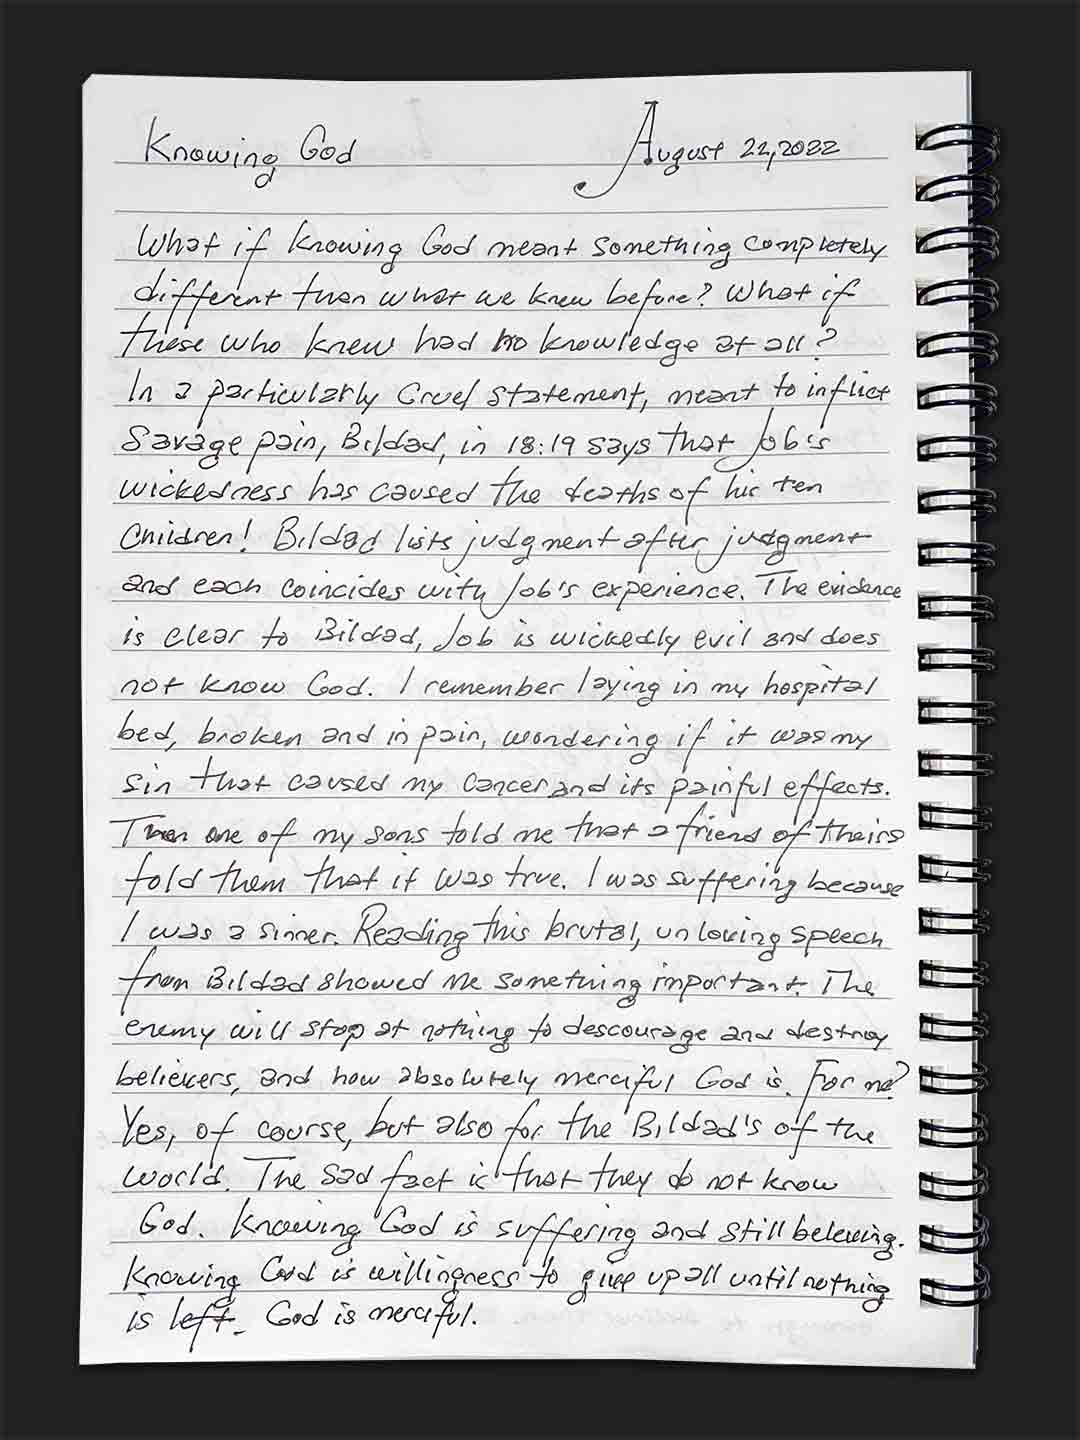 Knowing God August 22, 2022
What if knowing God meant something completely
different than what we knew before? What if
those who knew had no knowledge at all?
In a particularly cruel statement, meant to inflict
savage pain, Bildad, in 18:19 says that Job's
wickedness has caused the deaths of his ten
children! Bildad lists judgment after judgment
and each coincides with Job's experience. The evidence
is clear to Bildad, Job is wickedly evil and does
not know God. I remember laying in my hospital
bed, broken and in pain, wondering if it was my
sin that caused my cancer and its painful effects.
Then one of my sons told me that a friend of theirs
told them that it was true. I was suffering because
I was a sinner. Reading this brutal, unloving speech
from Bildad showed me something important. The
enemy will stop at nothing to descourage and destroy
believers, and how absolutely merciful God is. For me?
Yes, of course, but also for the Bildad's of the
world. The sad fact is that they do not know
God. Knowing God is suffering and still beleving.
Knowing God is willingness to give up all until nothing
is left. God is merciful.